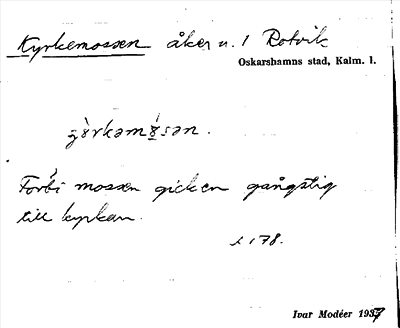 Kyrkemossen åker u. 1 Rotvik
Oskarshamns stad, Kalm. l.
Förbi mossen gick en gångstig
till kyrkan.
s 178.
Ivar Modéer 1937